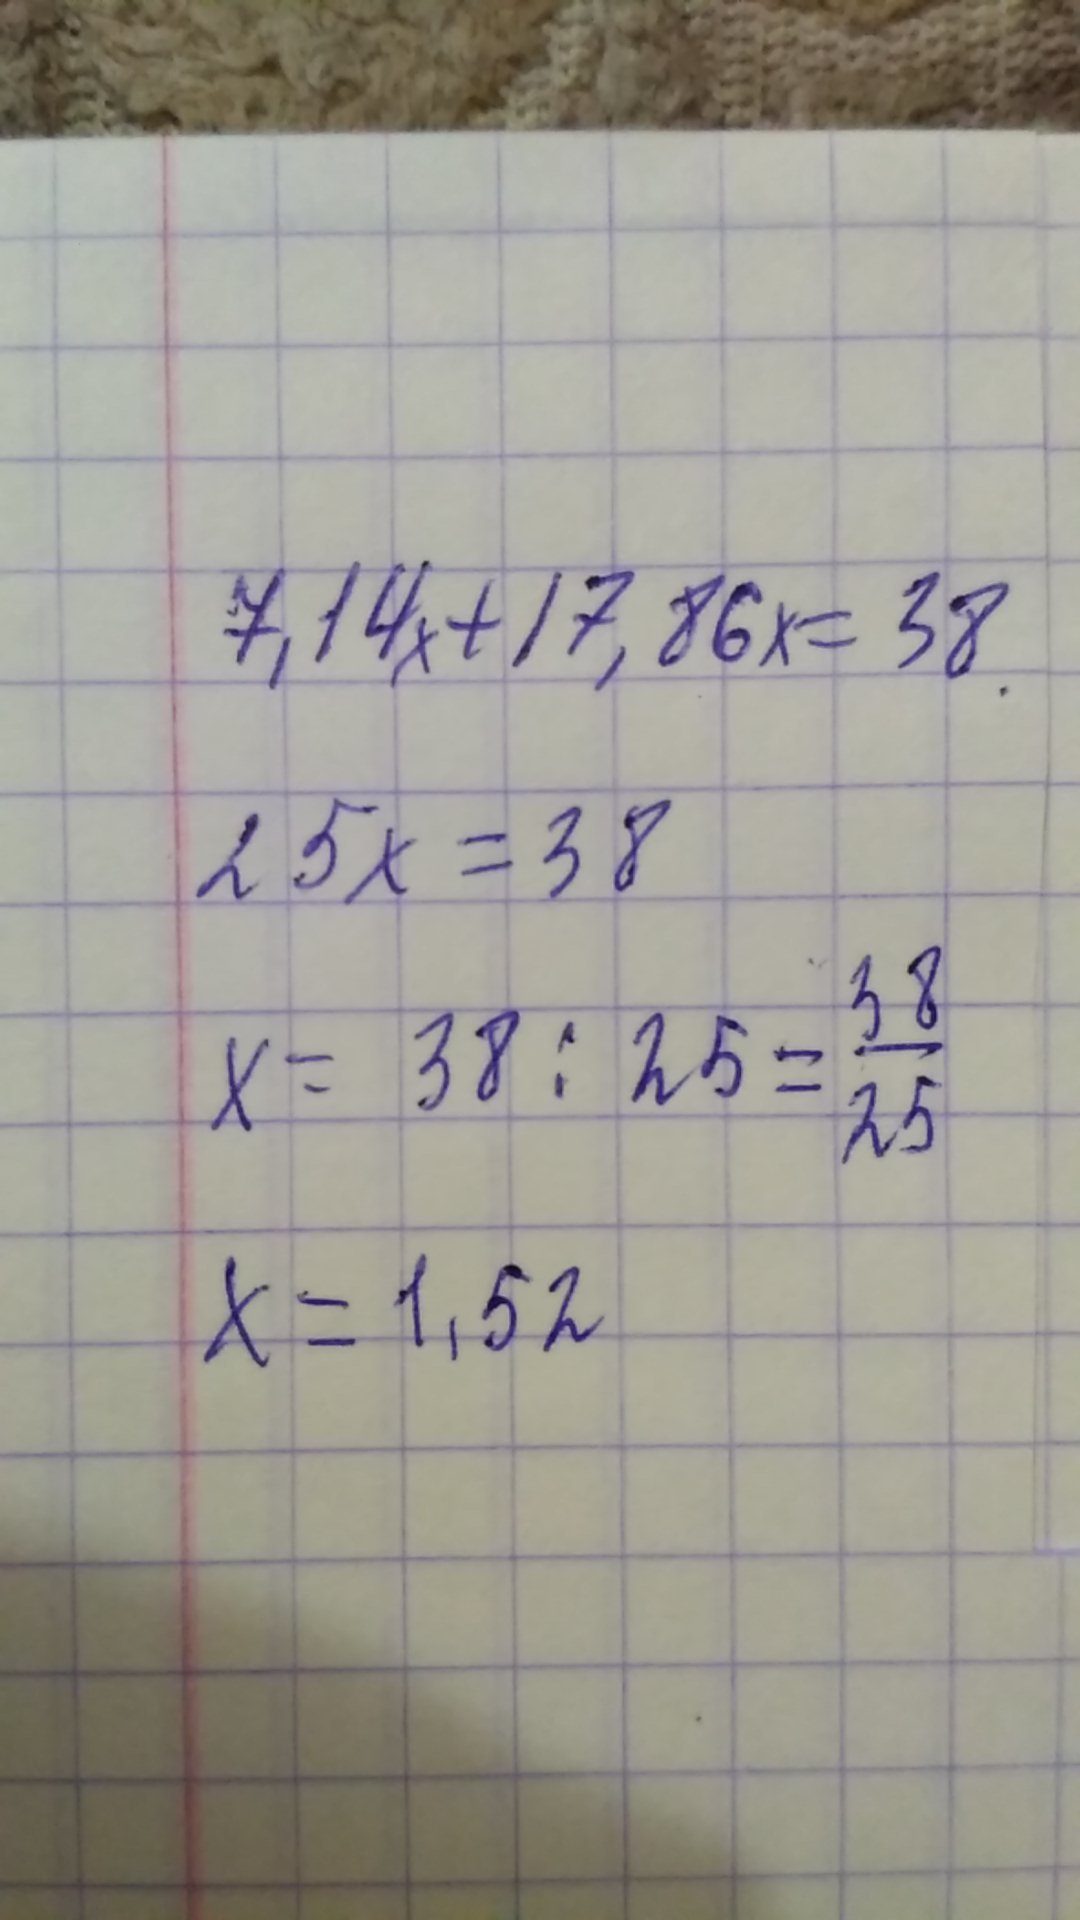 7,14x+17,86x=38
25x=38
x= 38:25=38/25
x=1,52